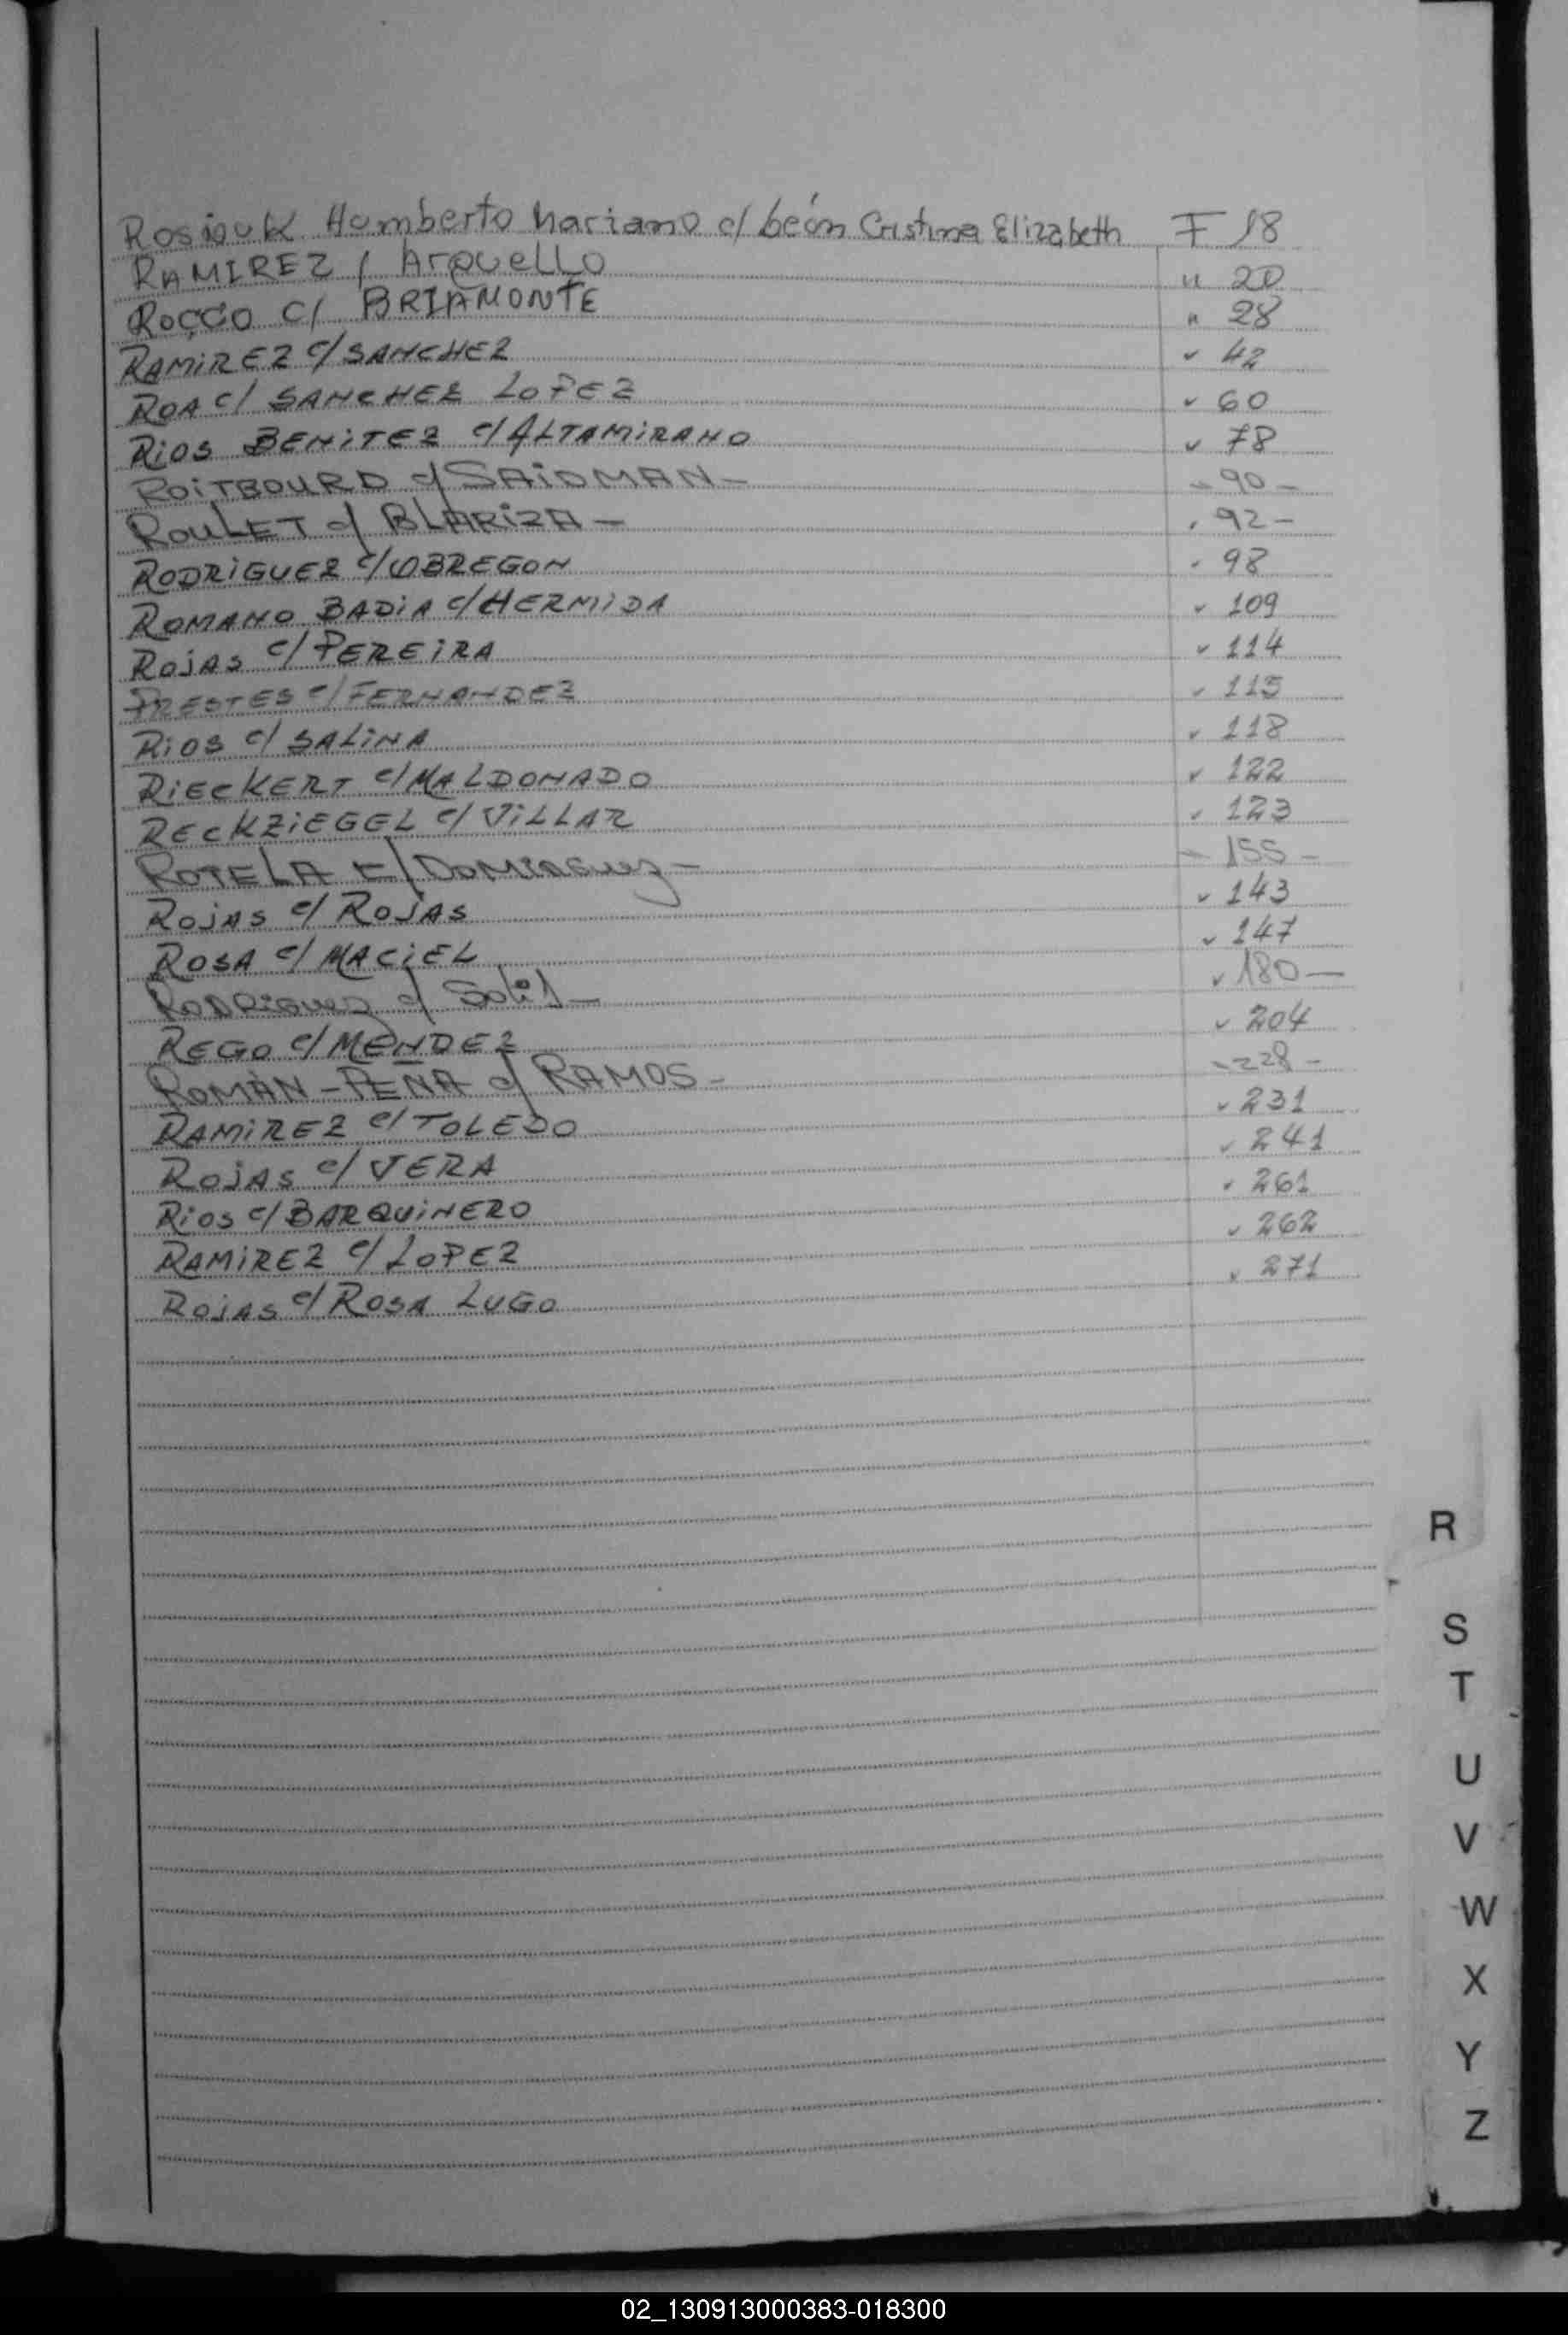 Rosiouk Humberto Mariano c/ León Cristina Elizabeth F 18
RAMIREZ / ArguelLo " 20
Rocco C/ BRIAMONTE " 28
RAMiREZ c/ SANCHEZ " 42
ROA c/ SANCHEZ LOPEZ " 60
Rios BENiTEZ c/ ALTAMiRANO " 78
ROiTBOURD c/ SAiDMAN - " 90 -
ROULET c/ BLARiZA - " 92 -
RODRiGUEZ c/ OBREGON " 98
ROMANO BADiA c/ HERMiDA " 109
ROjAS c/ PEREiRA " 114
PRESTES c/ FERNANDEZ " 115
Rios c/ SALiNA " 118
RiECKERT c/ MALDONADO " 122
RECKZiEGEL c/ ViLLAR " 123
ROTELA c/ Dominguez - " 155 -
ROjAS c/ ROJAS " 143
ROSA c/ MACiEL " 147
RODRiguez c/ Solis - " 180 -
REGO c/ MENDEZ " 204
ROMÁN - PEÑA c/ RAMOS - " 228 -
RAMiREZ c/ TOLEDO " 231
ROjAS c/ VERA " 241
Rios c/ BARQUiNERO " 261
RAMiREZ c/ LOPEZ " 262
ROjAS c/ ROSA LUGO " 271
R
S
T
U
V
W
X
Y
Z
02_130913000383-018300